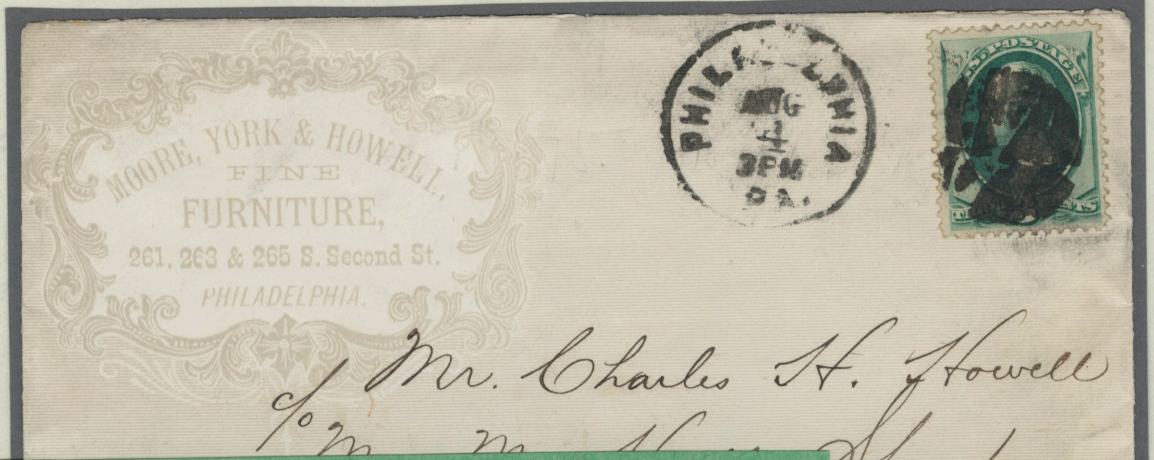 MOORE, YORK & HOWELL,
FINE
FURNITURE,
261, 263 & 265 S. Second St.
PHILADELPHIA.
PHILADELPHIA
AUG
3PM
PA.
U.S. POSTAGE
Mr. Charles H. Howell
c/o